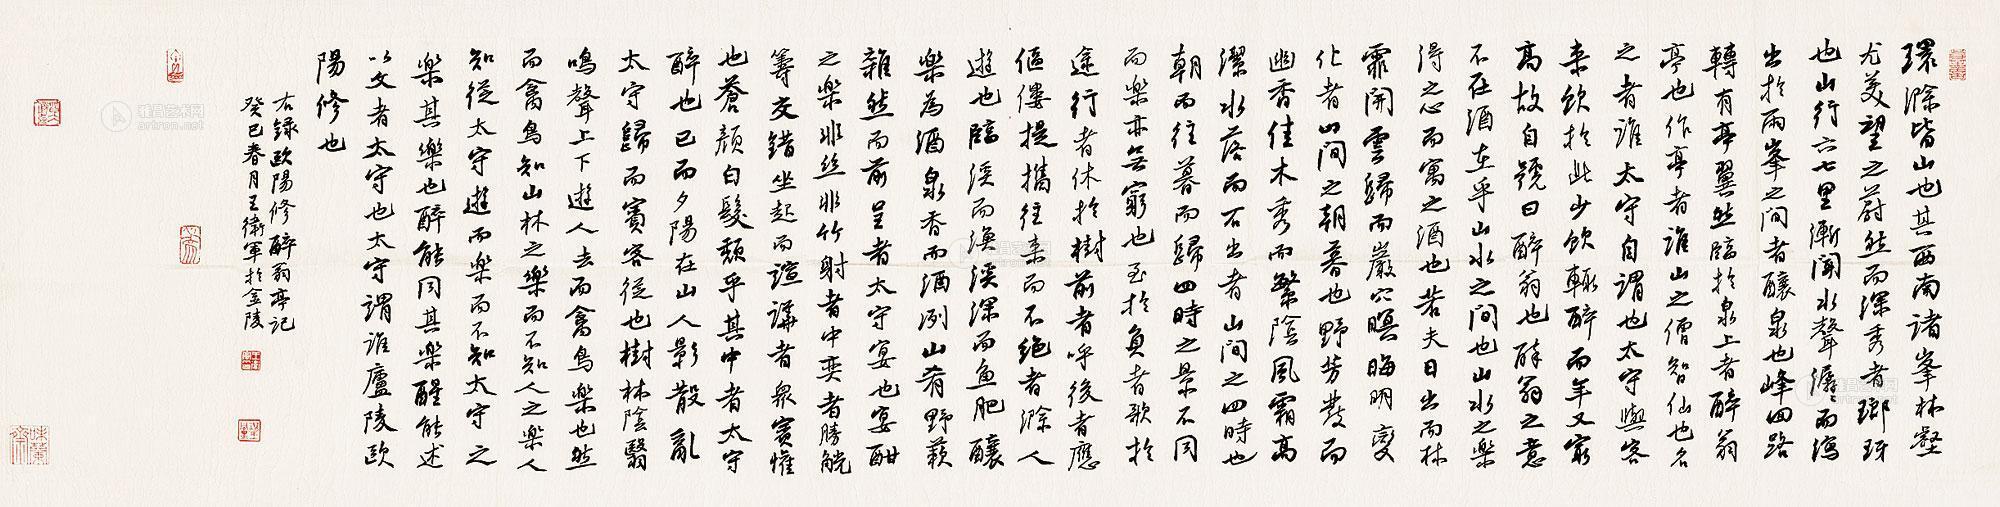 環滁皆山也其西南諸峯林壑
尤美望之蔚然而深秀者瑯琊
也山行六七里漸聞水聲潺〻而瀉
出於兩峯之間者釀泉也峰回路
轉有亭翼然臨於泉上者醉翁
亭也作亭者誰山之僧智仙也名
之者誰太守自謂也太守與客
来飲於此少飲輒醉而年又寂
高故自號曰醉翁也醉翁之意
不在酒在乎山水之間也山水之樂
得之心而寓之酒也若夫日出而林
霏開雲歸而巖穴暝晦明變
化者山間之朝暮也野芳發而
幽香佳木秀而繁陰風霜高
潔水落而石出者山間之四時也
朝而往暮而歸四時之景不同
而樂亦無窮也至於負者歌於
途行者休於樹前者呼後者應
傴僂提攜往来而不絕者滁人
遊也臨溪而漁溪深而魚肥釀
樂為酒泉香而酒洌山肴野蔌
雜然而前呈者太守宴也宴酣
之樂非絲非竹射者中奕者勝觥
籌交錯坐起而諠譁者衆賓懽
也蒼顏白髮頹乎其中者太守
醉也已而夕陽在山人影散亂
太守歸而賓客從也樹林陰翳
鳴聲上下遊人去而禽鳥樂也然
而禽鳥知山林之樂而不知人之樂人
知從太守遊而樂而不知太守之
樂其樂也醉能同其樂醒能述
以文者太守也太守謂誰廬陵歐
陽修也
右錄歐陽修醉翁亭記
癸巳春月王衛軍於金陵